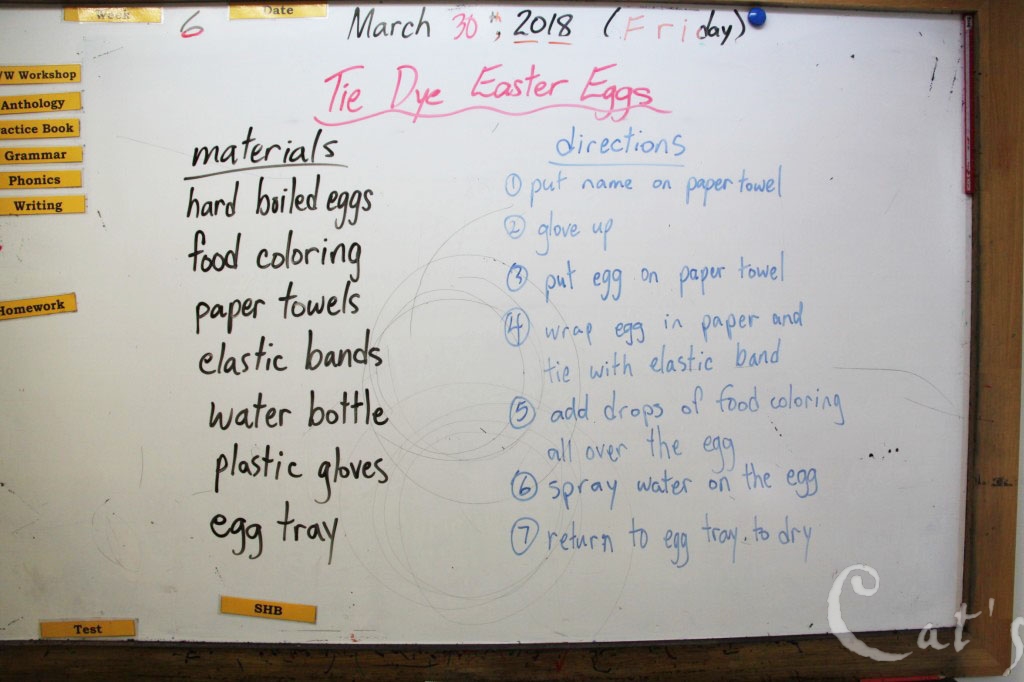 Week
Date
6
March 30th, 2018 (Friday)
/W Workshop
Anthology
actice Book
Grammar
Phonics
Writing
Homework
Tie Dye Easter Eggs
materials
hard boiled eggs
food coloring
paper towels
elastic bands
water bottle
plastic gloves
egg tray
directions
① put name on paper towel
② glove up
③ put egg on paper towel
④ wrap egg in paper and
tie with elastic band
⑤ add drops of food coloring
all over the egg
⑥ spray water on the egg
⑦ return to egg tray to dry
SHB
Test
Cat's